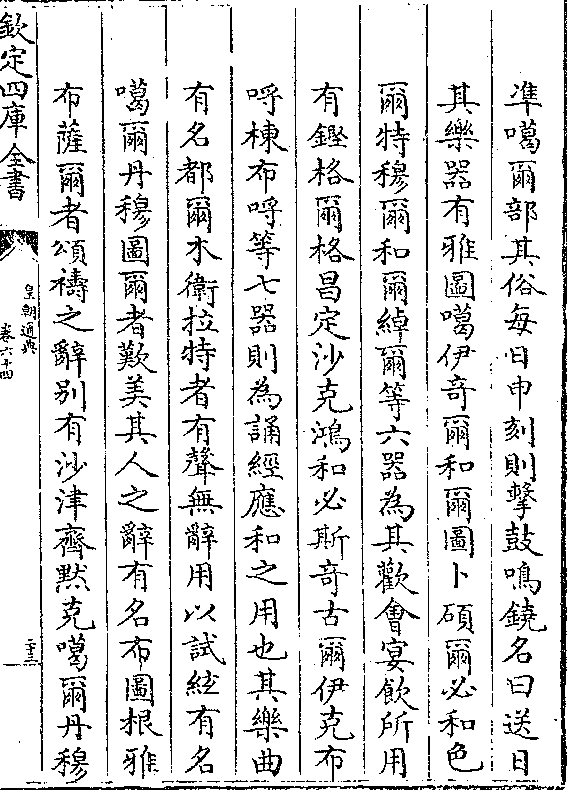 準噶爾部其俗每日申刻則擊鼓鳴鐃名曰送日
其樂器有雅圖噶伊奇爾和爾圖卜碩爾必和色
爾特穆爾和爾綽爾等六器為其歡㑹宴飲所用
有鏗格爾格昌定沙克鴻和必斯奇古爾伊克布
哷棟布哷等七器則為誦經應和之用也其樂曲
有名都爾本衛拉特者有聲無辭用以試絃有名
噶爾丹穆圖爾者歎美其人之辭有名布圖根雅
布薩爾者頌禱之辭别有沙津齊默克噶爾丹穆
欽定四庫全書
皇朝通典
卷六十四
二十三